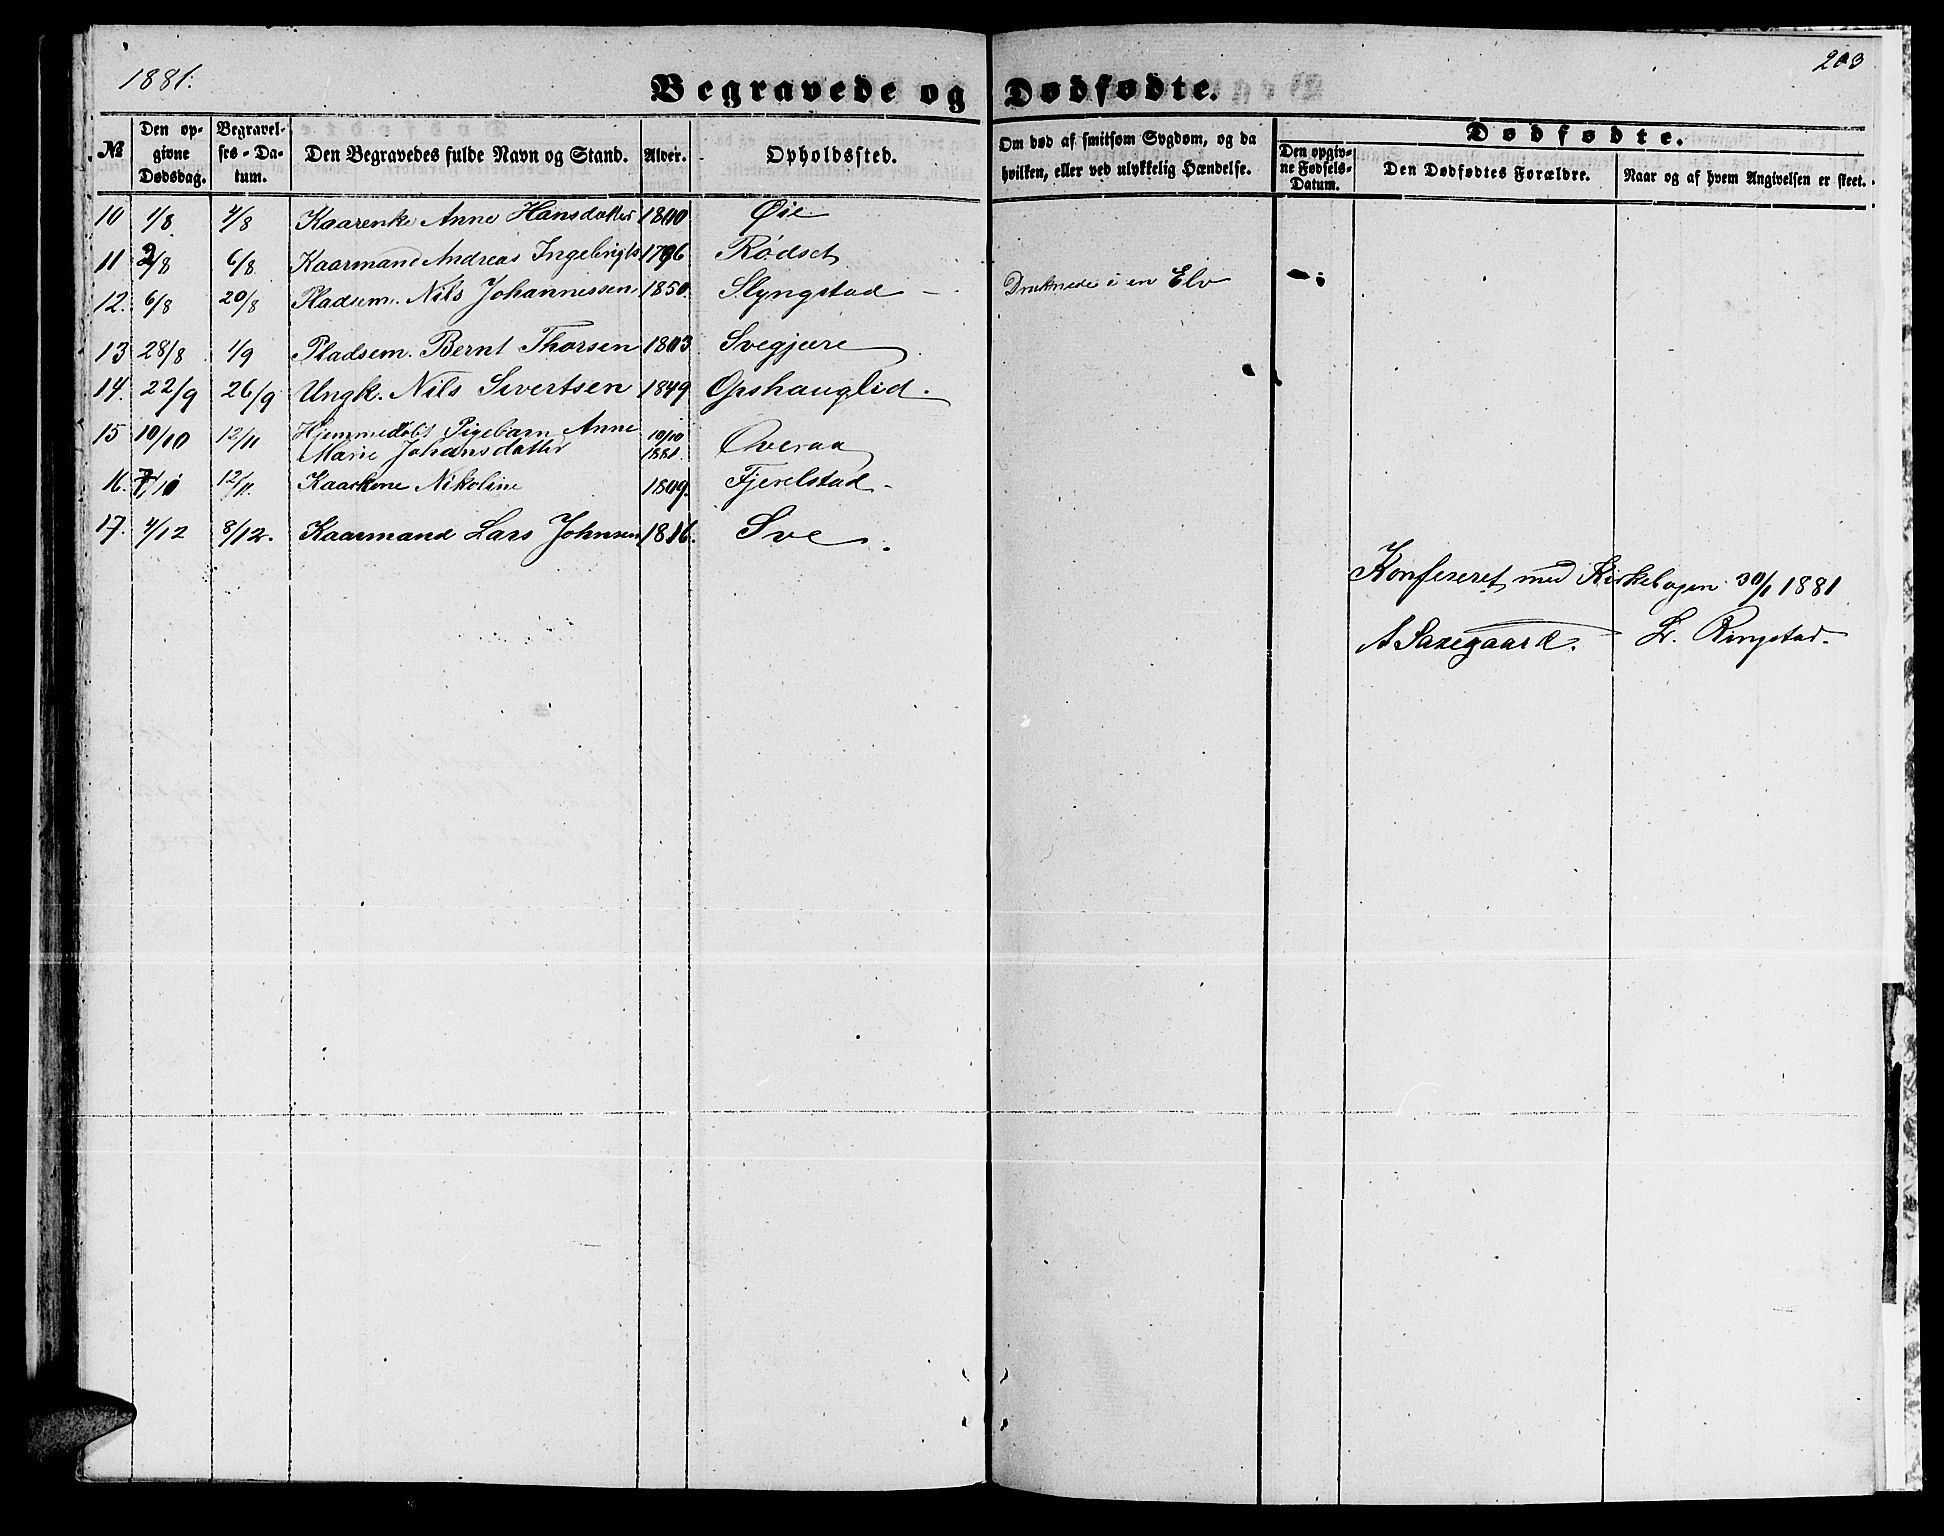 1881.
203
Begravede og Dødfødte.
№
Den opgivne Dødsdag.
Begravelses-Datum.
Den Begravedes fulde Navn og Stand.
Alder.
Opholdssted.
Om død af smitsom Sygdom, og da hvilken, eller ved ulykkelig Hændelse.
Dødfødte.
Den opgivne Fødsels-Datum.
Den Dødfødtes Forældre.
Naar og af hvem Angivelsen er skeet.
10 1/8 4/8 Kaarenke Anne Hansdatter 1840 Øie
11 2/8 6/8 Kaarmand Andreas Ingebrigts 1796 Rødset
12. 6/8 20/8 Pladsem. Nils Johannessen 1850. Slyngstad - Druknede i en Elv
13 28/8 1/9 Pladsem. Bernt Thorsen 1803 Svegjære
14. 22/9 26/9 Ungk. Nils Sivertsen 1849 Opshauglid.
15 10/10 12/11 Hjemmedøbt Pigebarn Anne
Marie Johansdatter 10/10 1881. Overaa
16. 12/11. Kaarkone Nikoline 1809. Fjerelstad -
17. 4/12 8/12. Kaarmand Lars Johnsen 1816. Sve.
Konfereret med Kirkebogen 30/1 1881
A Saxegaard. L. Ringstad.